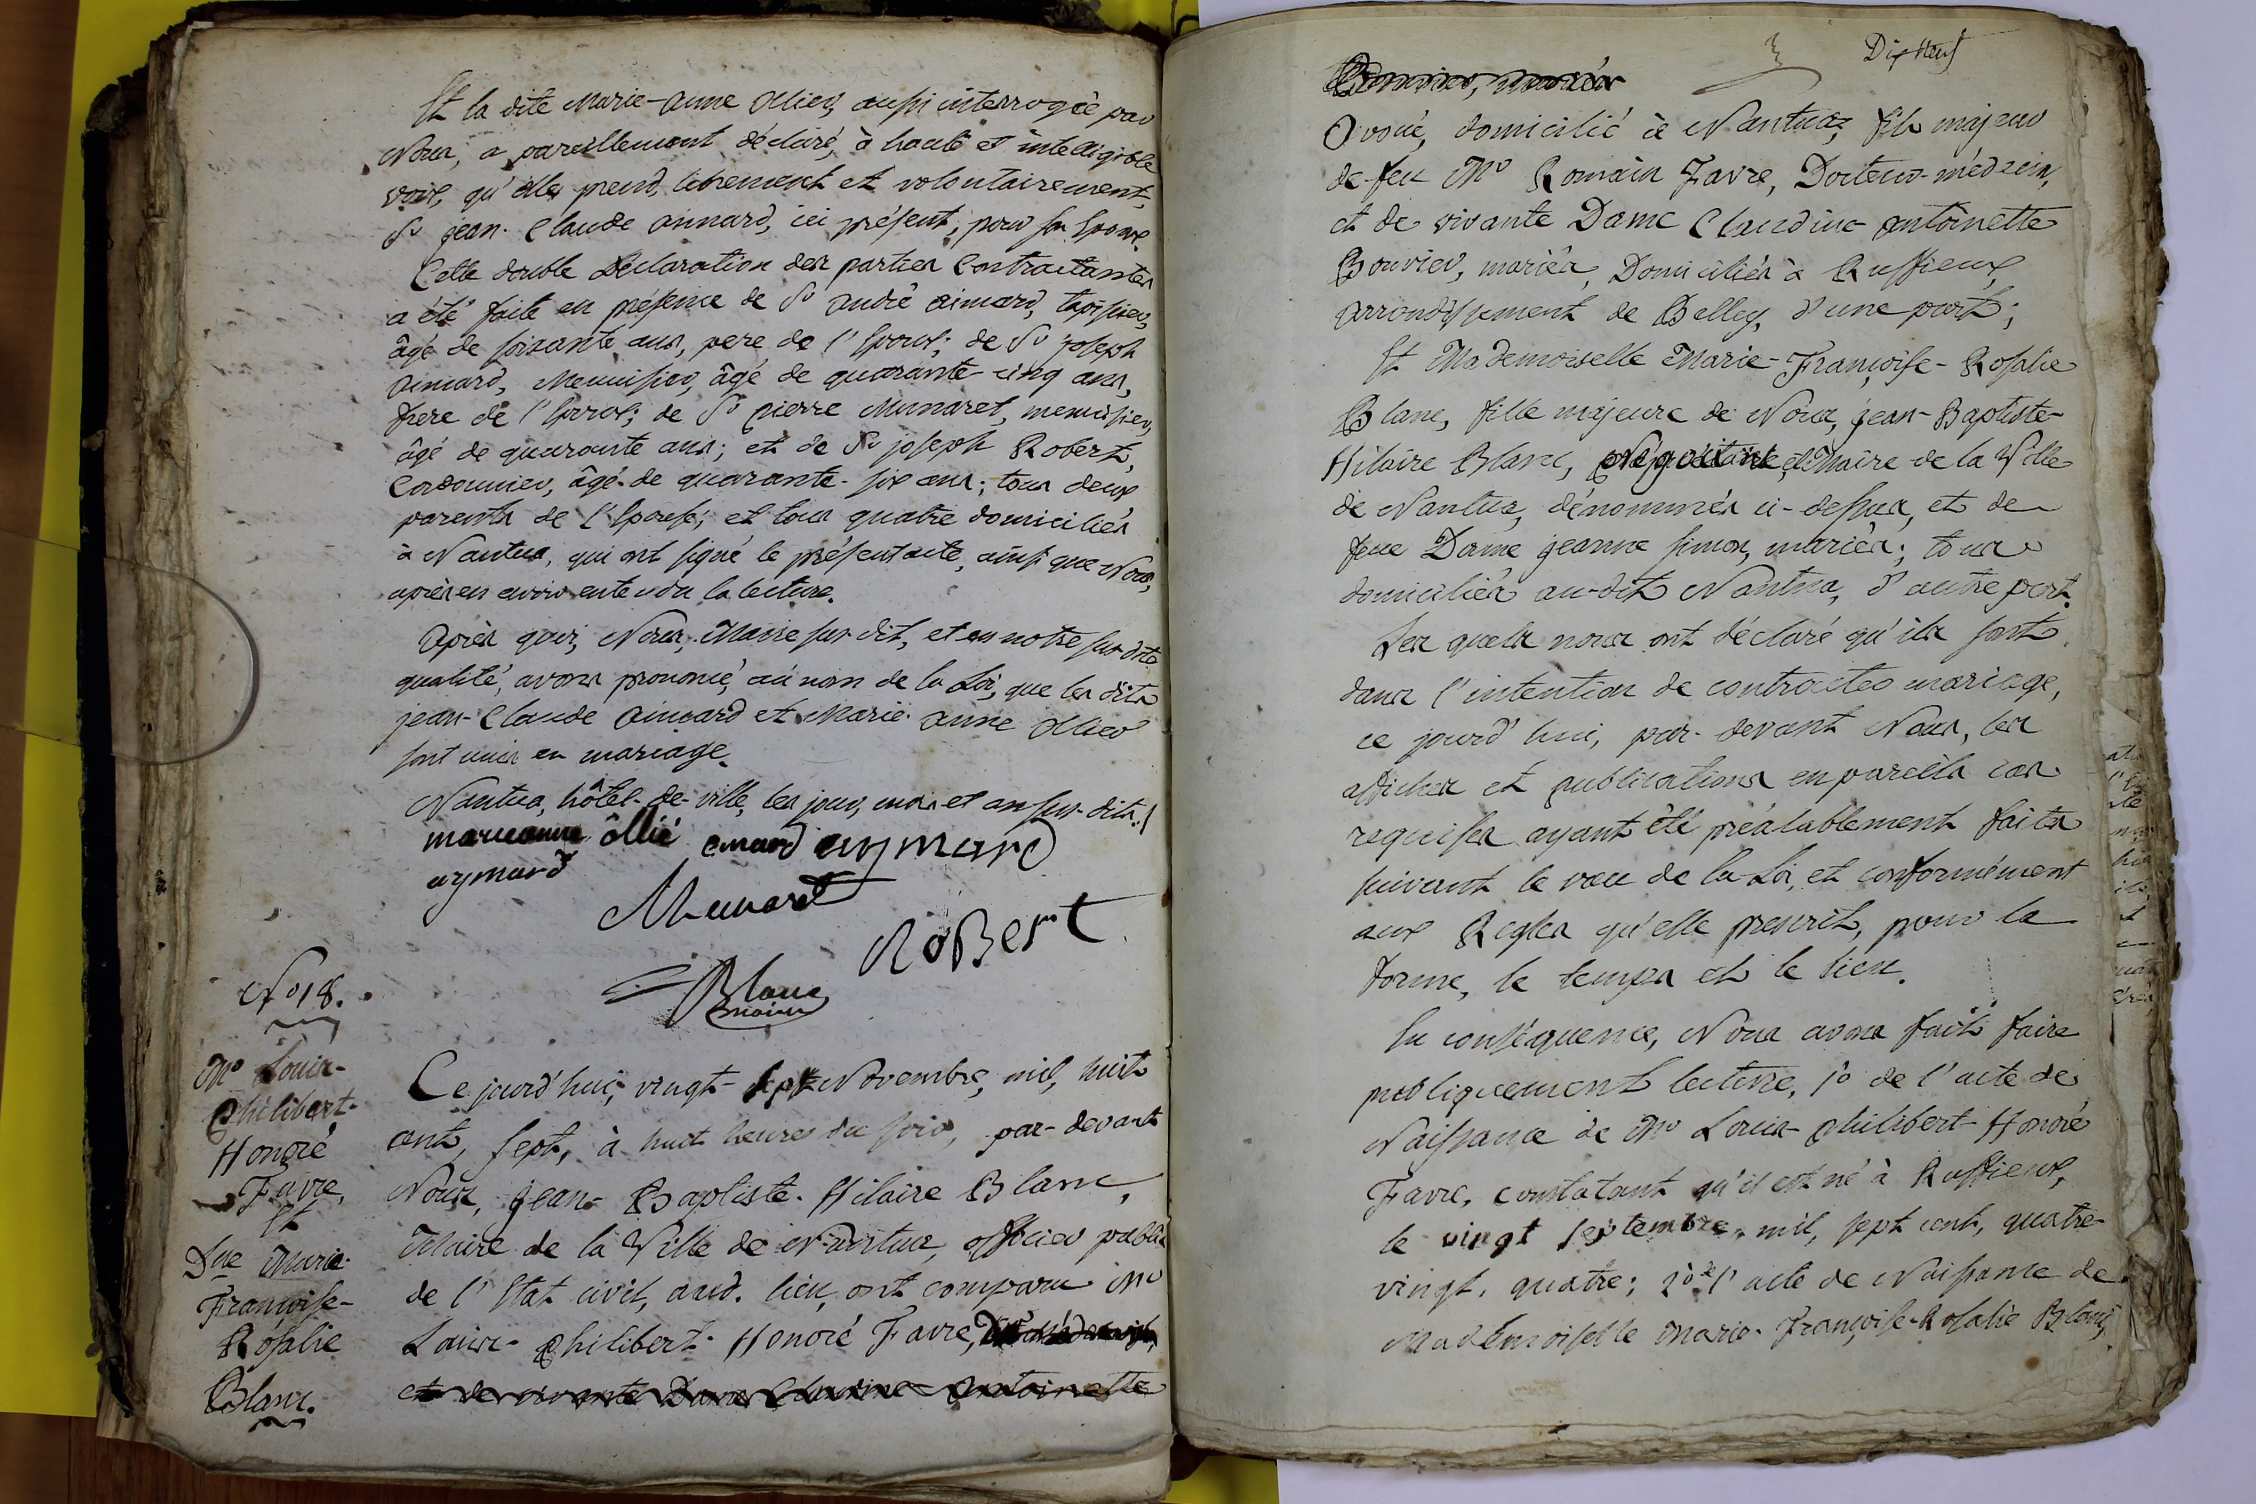 Et la dite Marie-Anne Ollier, aussi interrogée par
Nous, a pareillement déclaré, à haute et intelligible
voix, qu'elle prend, librement et volontairement,
Sr jean-Claude Aimard, ici présent, pour son Epoux.
Cette double Déclaration des parties Contractantes
a été faite en présence de Sr André Aimard,
âgé de soixante ans, pere de l'Epoux; de Sr joseph
Aimard, Menuisier, âgé de quarante-cinq ans,
frere de l'Epoux; de Sr pierre Munaret, menuisier,
âgé de quarante ans; et de Sr joseph Robert,
Cordonnier, âgé de quarante-six ans; tous deux
parents de l'Epouse; et tous quatre domiciliés
à Nantua, qui ont signé le présent acte, ainsi que Nous,
après en avoir entendu la lecture.
Après quoi, Nous, Maire sus-dit, et en notre sus-dite
qualité, avons prononcé, au nom de la Loi, que les dits
jean-Claude Aimard et Marie-Anne Ollier
sont unis en mariage.
Nantua, hôtel-de-ville, les jour, mois et an sus-dits./.
marieanne ôllié emard aymard
aymard
Munaret
RoBert
Blanc
maire
No 18.
Mr Louis-
Philibert-
Honoré
Favre,
Et
Dlle Marie-
Françoise-
Rosalie
Blanc.
Ce jourd'hui, vingt-sept Novembre, mil, huit
cent, sept, à huit heures du soir, par-devant
Nous, jean-Baptiste-Hilaire Blanc,
Maire de la Ville de Nantua, officier public
de l'Etat civil, aud. lieu, ont comparu Mr
Louis-Philibert-Honoré Favre,
et de vivante Dame Claudine-Antoinette
Dix Neuf
Bouvier, mariés
Avoué, domicilié à Nantua, fils majeur
de feu Mr Romain Favre, Docteur-médecin,
et de vivante Dame Claudine-Antoinette
Bouvier, mariés, Domiciliés à Ruffieux,
arrondissement de Belley, d'une part;
Et Mademoiselle Marie-Françoise-Rosalie
Blanc, fille majeure de Nous, jean-Baptiste-
Hilaire Blanc, Négociant, et Maire de la Ville
de Nantua, dénommés ci-dessus, et de
feue Dame jeanne Simon, mariés; tous
domiciliés au-dit Nantua, d'autre part.
Les quels nous ont déclaré qu'ils sont
dans l'intention de contracter mariage,
ce jourd'hui, par-devant Nous, les
affiches et publications en pareils cas
requises ayant été préalablement faites
suivant le vœu de la Loi, et conformément
aux Regles qu'elle prescrit, pour la
forme, le temps et le lieu.
En conséquence, Nous avons fait faire
publiquement lecture, 1o de l'acte de
Naissance de Mr Louis-Philibert-Honoré
Favre, constatant qu'il est né à Ruffieux,
le vingt septembre, mil, sept cent, quatre-
vingt, quatre; 2o de l'acte de Naissance de
Mademoiselle Marie-Françoise-Rosalie Blanc,